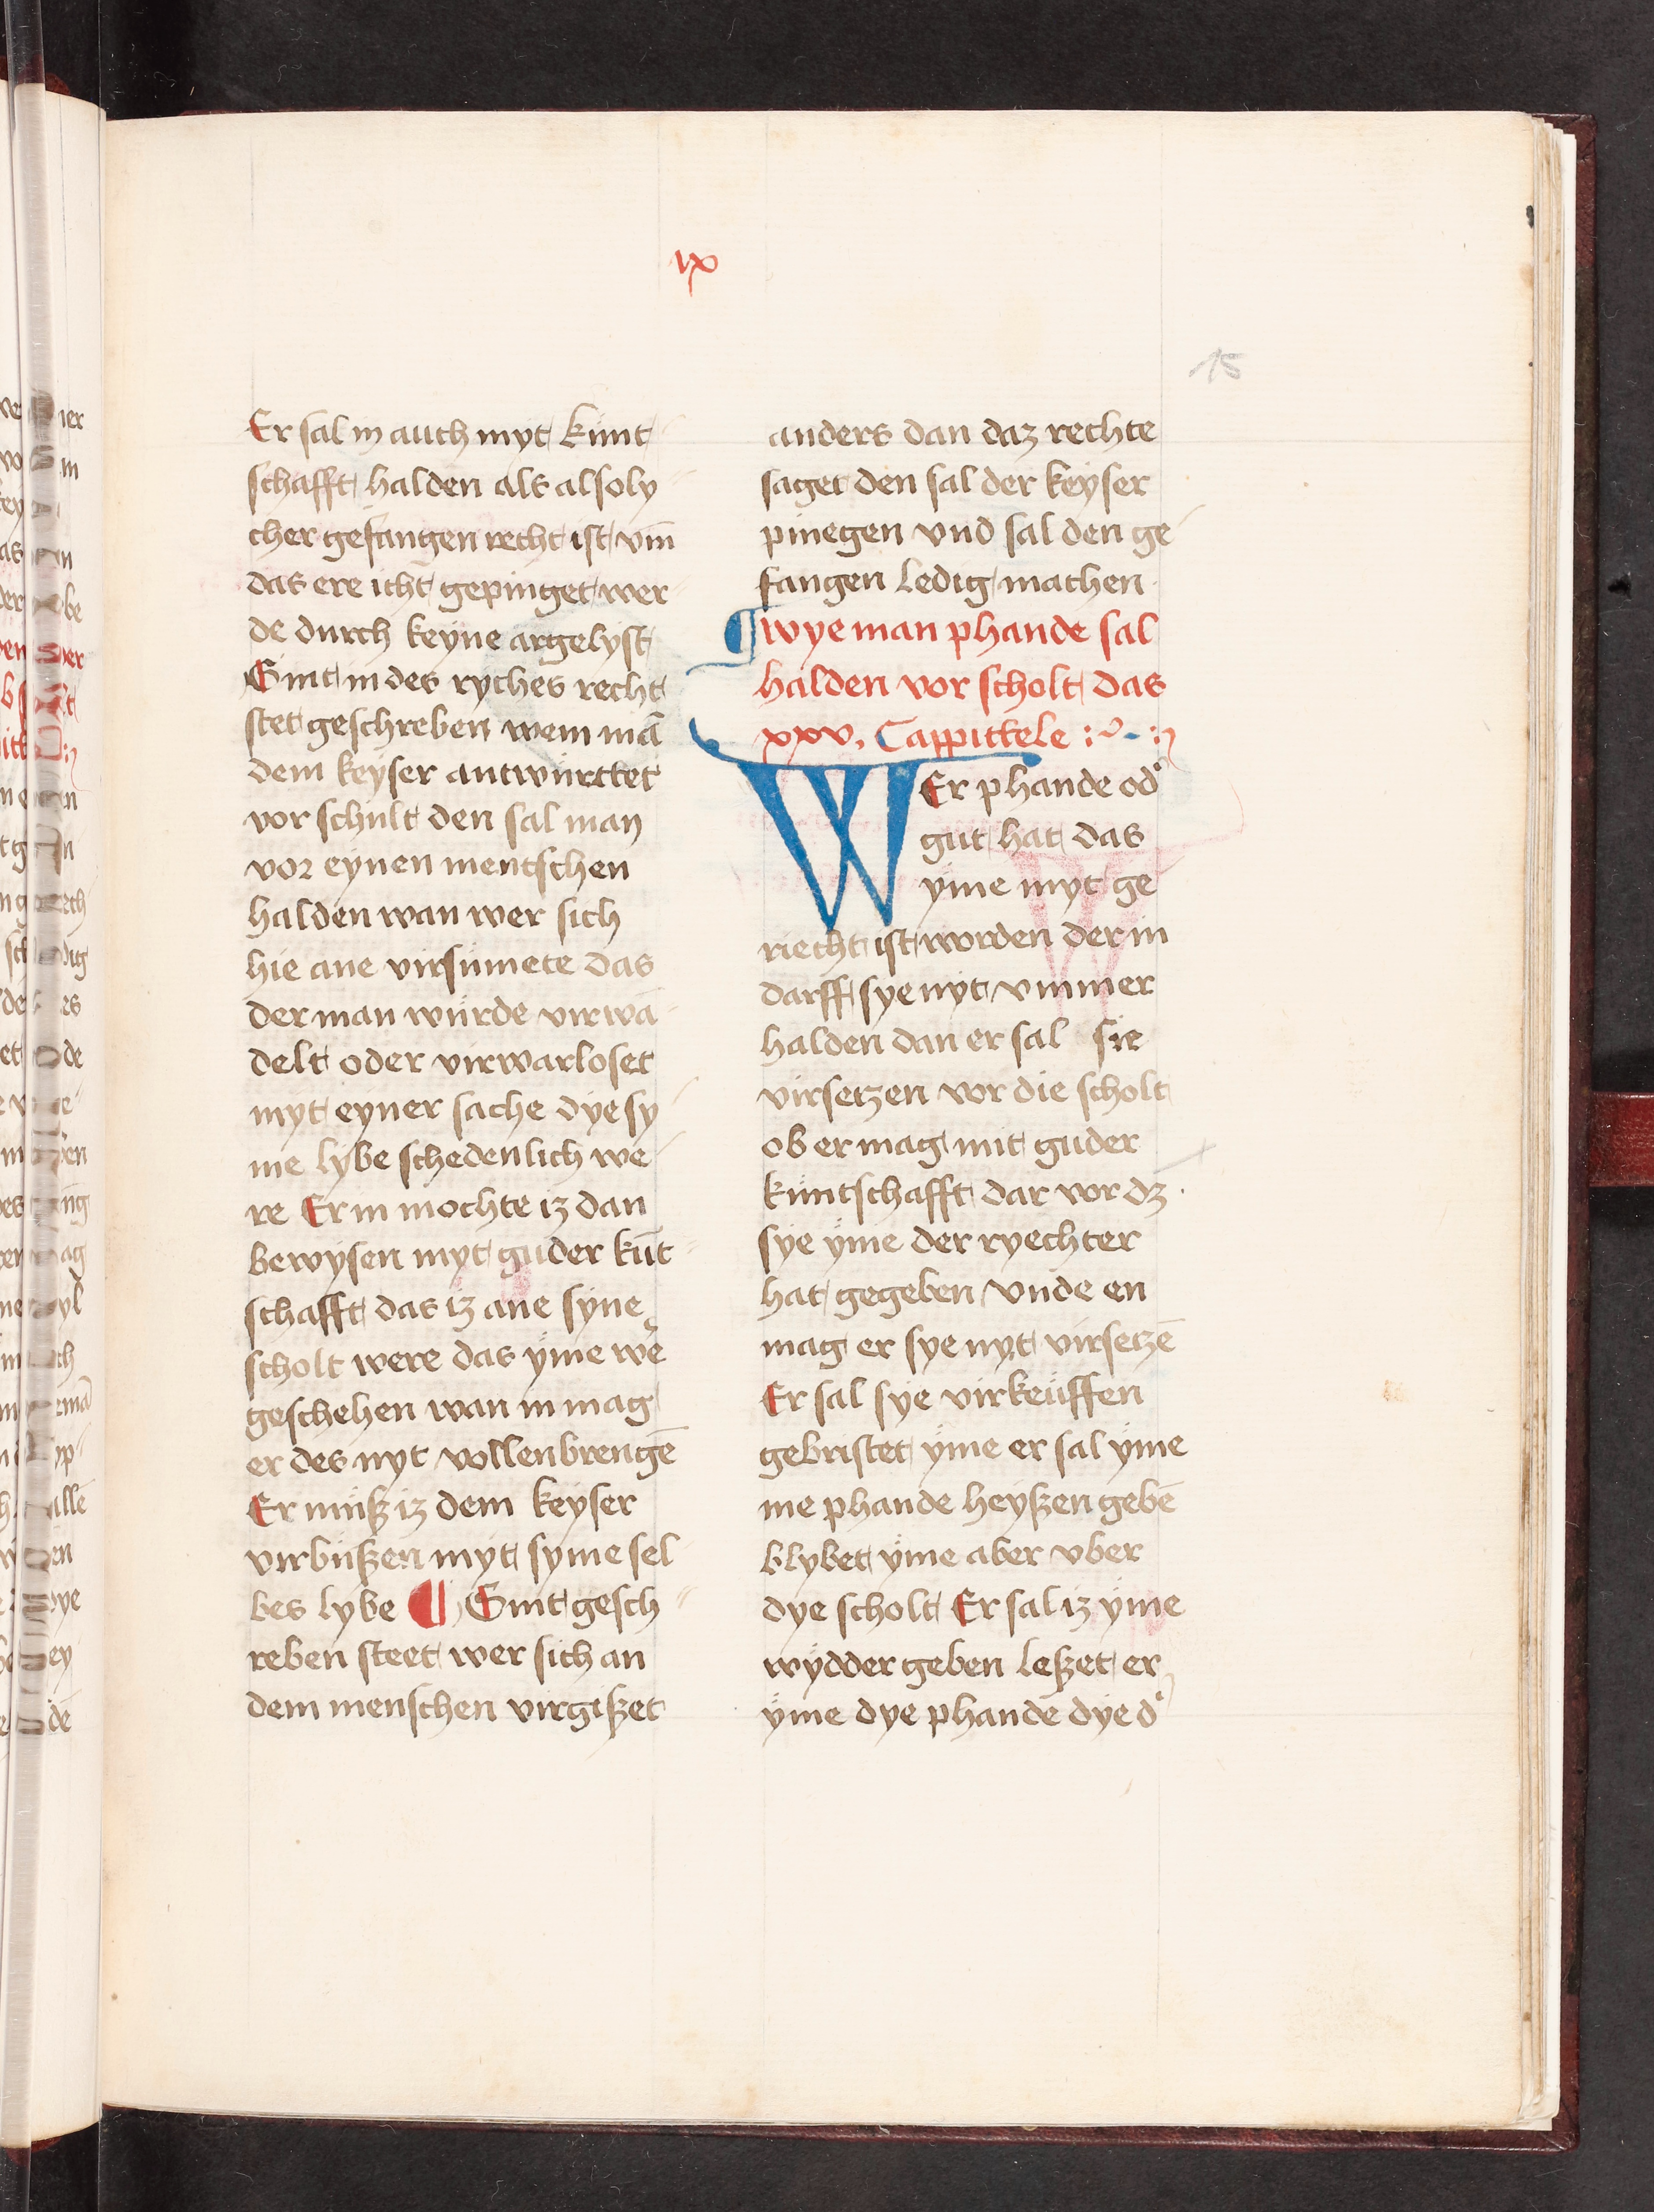 ix
15
Er sal in auch myt kunt
schafft halden als alsoly
cher gefangen recht ist vm̄
das ere icht gepinget wer
de durch keyne argelyst
Sint in des ryches recht
stet geschreben wem mā
dem keyser antwürttet
vor schult den sal man
vor eynen mentschen
halden wan wer sich
hie ane virsümete das
der man würde virwā
delt oder virwarloset
myt eyner sache dye sy
me lybe schedenlich we
re Er in mochte iz dan
bewysen myt guder kūt
schafft das iz ane syne
scholt were das ÿme wē
geschehen wan in mag
er des nyt vollenbrengē
Er müsz iz dem keyser
virbüszen myt syme sel
bes lybe ¶ Sint gesch
reben steet wer sich an
dem menschen virgiszet
anders dan daz rechte
saget den sal der keyser
pinegen vnd sal den ge
fangen ledig machen
¶ wye man phande sal
halden vor scholt das
xxv. Cappittele :~-:
WEr phande od'
gut hat das
ÿme myt ge
riecht ist worden der in
darff sye nyt vmmer
halden dan er sal sie
virsetzen vor die scholt
ob er mag mit guder
küntschafft dar vor dz
sye ÿme der ryechter
hat gegeben vnde en
mag er sye nyt virsetzē
Er sal sye virkeüffen
gebristet ÿme er sal ÿme
me phande heyszen gebē
blybet ÿme aber vber
dye scholt Er sal iz ÿme
wÿdder geben leszet er
ÿme dye phande dye d'